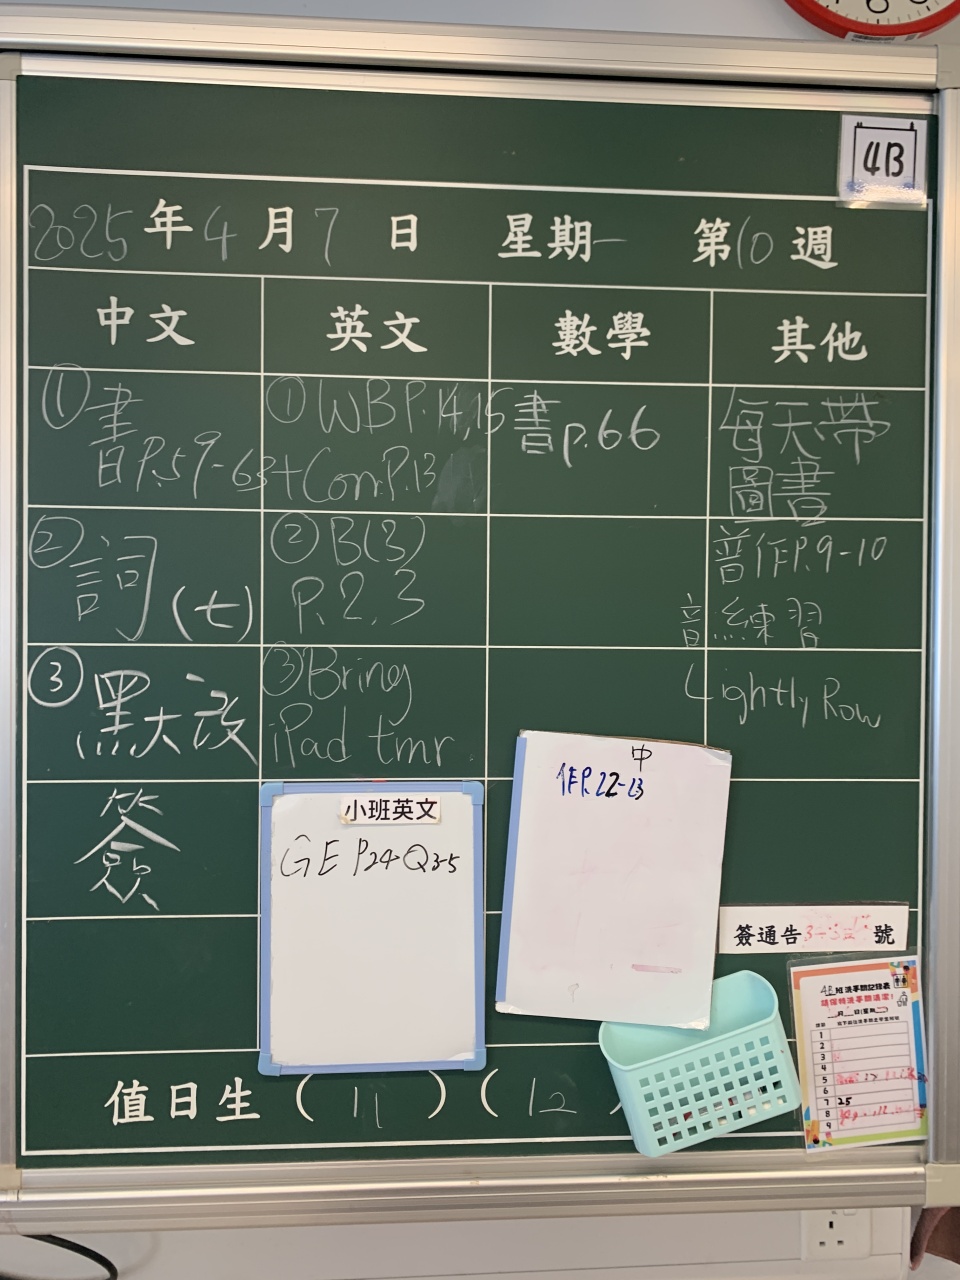 4B
2025年4月7日 星期一 第10週
中文 英文 數學 其他
① 書
P.59-63
① WBP.14,15
+Corr.P.13
書p.66
每天帶
圖書
② 詞
(七)
② B(3)
P.2,3
普作P.9-10
音練習
③ 默大改
③ Bring
iPad tmr.
Lightly Row
簽
小班英文
GE P24 Q3-5
中
作P.22-23
簽通告 號
4B班洗手間記錄表
1
2
3
4
5
6
7 25
8
9
值日生 (11) (12